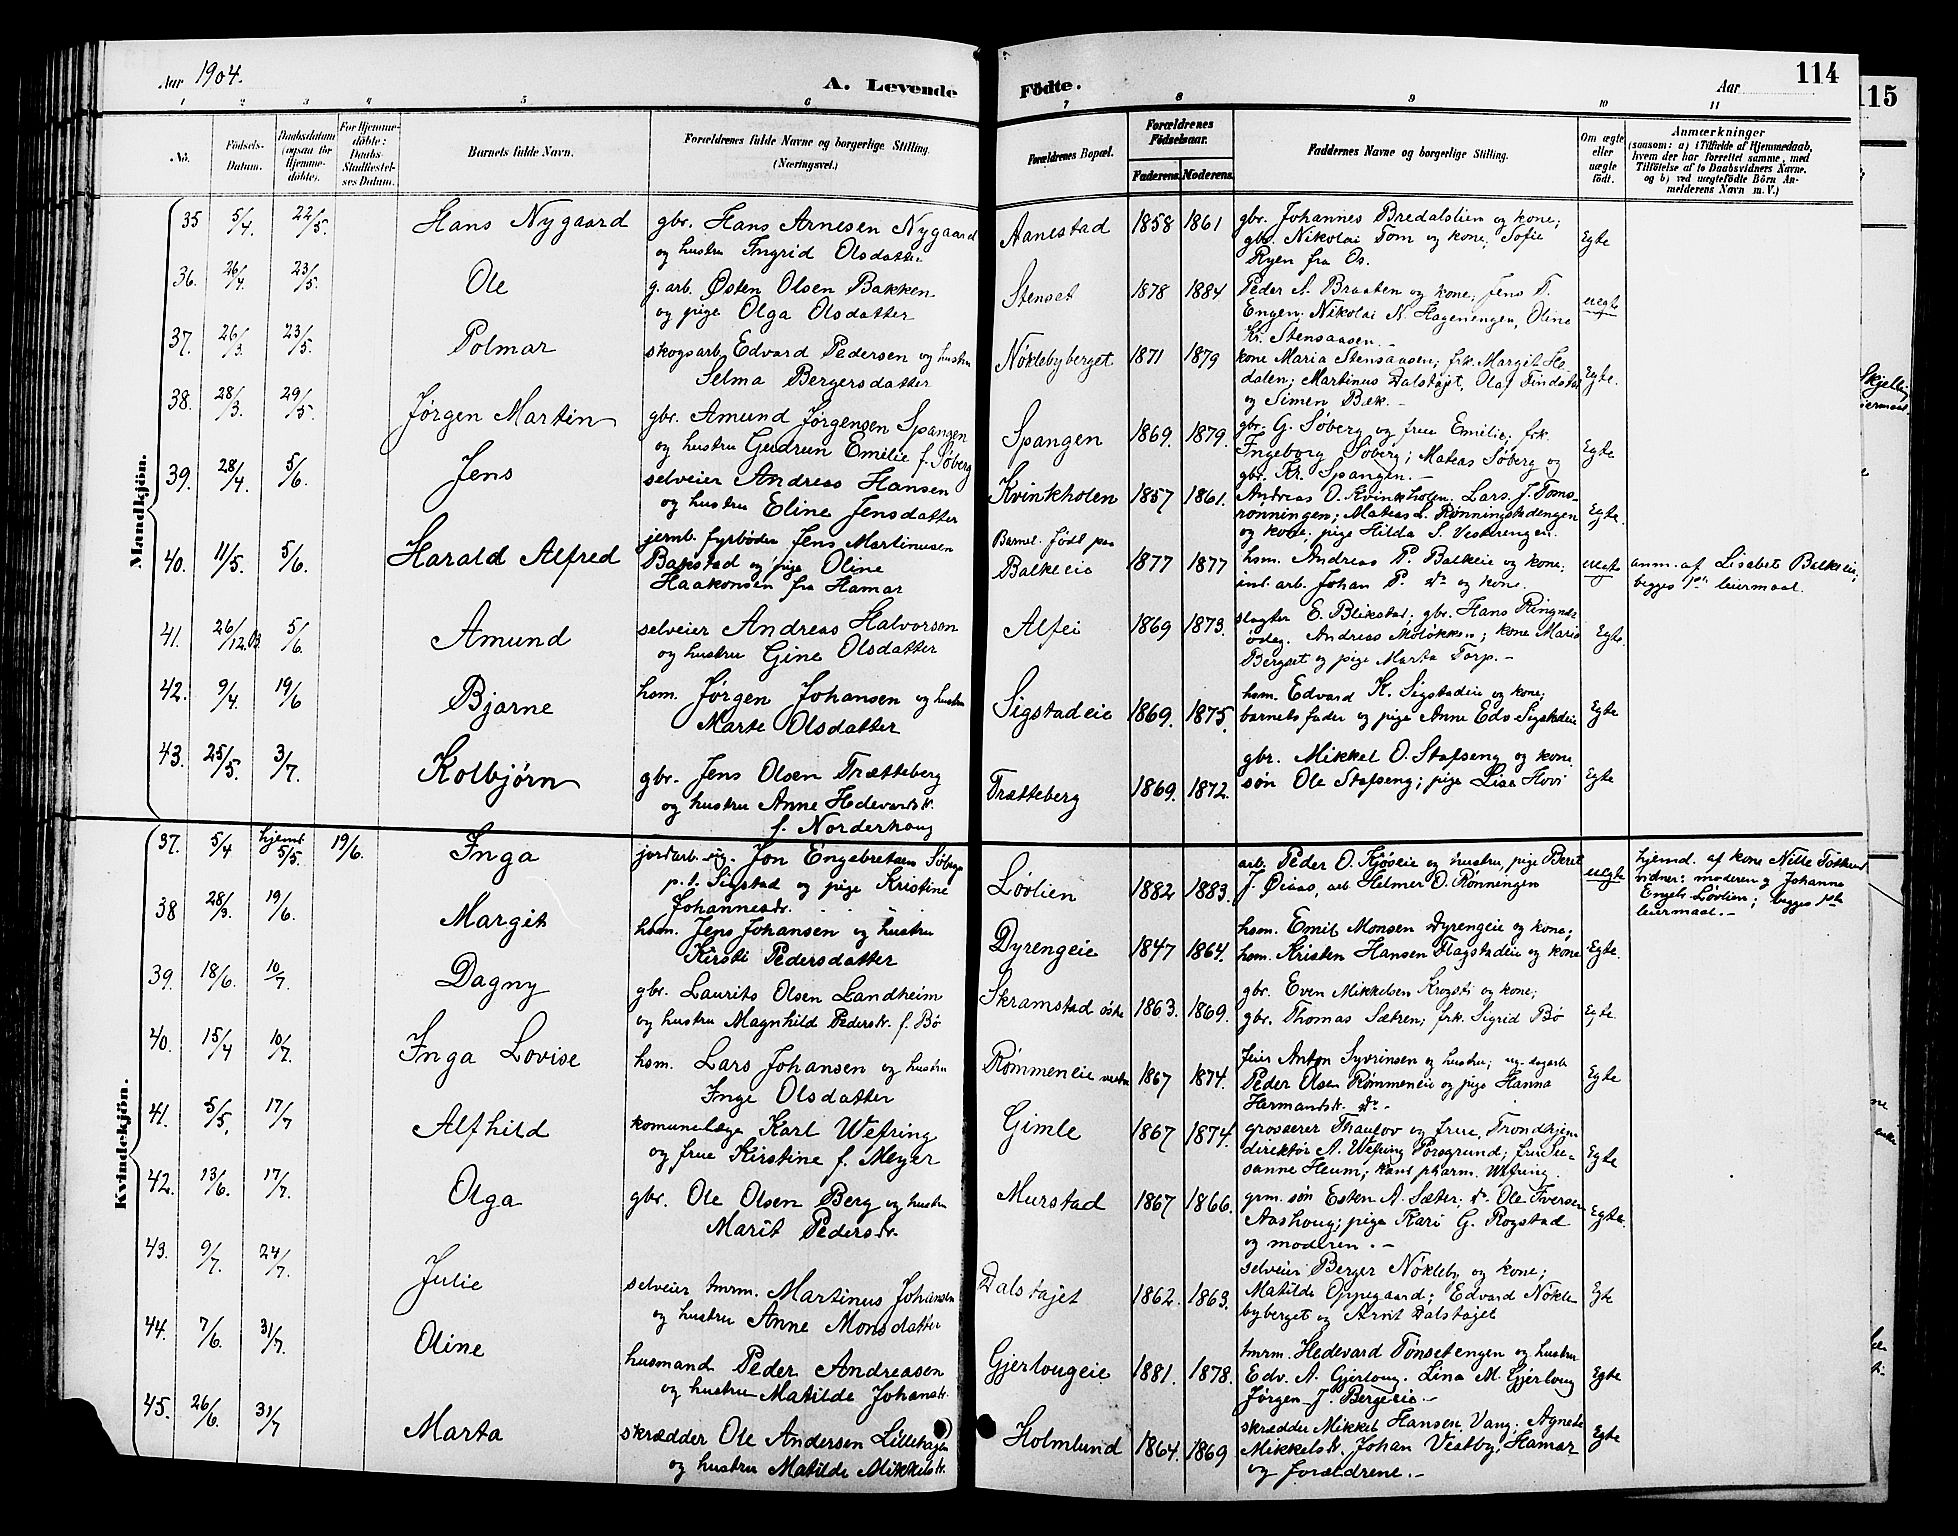 Aar 1904.
A. Levende
Födte.
Aar
114
115
1 2 3 4 5 6 7 8 9 10 11
No.
Födsels-
Datum.
Daabsdatum
(ogsaa for
Hjemme-
döbte).
For Hjemme-
döbte:
Daabs-
Stadfæstel-
ses Datum.
Barnets fulde Navn.
Forældrenes fulde Navne og borgerlige Stilling.
(Næringsvei.)
Forældrenes Bopæl.
Forældrenes
Födselsaar.
Faderens. Moderens.
Faddernes Navne og borgerlige Stilling.
Om ægte
eller
uægte
födt.
Anmærkninger
(saasom: a) i Tilfælde af Hjemmedaab,
hvem der har forrettet samme, med
Tilföielse af to Daabsvidners Navne.
og b) ved uægtefödte Börn An-
melderens Navn m. V.)
Mandkjön.
35 5/4. 22/5. Hans Nygaard gbr. Hans Arnesen Nygaard
og hustru Ingrid Olsdatter
Aanestad 1858 1861 gbr. Johannes Bredalslien og kone;
gbr. Nikolai Tom og kone, Sofie
Ryen fra Os.
Egte
36. 26/4. 23/5. Ole g. arb. Østen Olsen Bakken
og pige Olga Olsdatter
Stenset 1878 1884 Peder A. Braaten og kone; Jens T.
Engen. Nikolai N. Hagenengen, Oline
Kr. Stensaasen.-
uegte
37. 26/3. 23/5. Polmar skogsarb. Edvard Pedersen og hustru
Selma Bergersdatter
Nøklebyberget 1871 1879 kone Maria Stensaasen; frk. Margit He-
dalen; Martinus Dalstøjet, Olaf Findstad
og Simen Bæk.-
Egte.
38. 28/3. 29/5. Jørgen Martin gbr. Amund Jørgensen Spangen
og hustru Gudrun Emilie f. Søberg
Spangen 1869. 1879. gbr. G. Søberg og frue Emilie; frk.
Ingeborg Søberg; Mateas Søberg og
gbr. Kr. Spangen.-
Egte
39. 28/4. 5/6. Jens selveier Andreas Hansen
og hustru Eline Jensdatter
Kvinkholen 1857 1861. Andreas O. Kvinkholen. Lars J. Toms-
rønningen; Mateas L. Rønningstadengen
og kone; pige Hilda S. Vesterengen.
Egte.
40. 11/5. 5/6. Harald Alfred jernb. fyrbøder Jens Martinusen
Bakstad og pige Oline
Haakonsen fra Hamar
Barnet født paa
Balkeeie 1877 1877 hsm. Andreas P. Balkeie og kone;
ind. arb. Johan P. do og kone.
uegte anm. af Lisabet Balkeeie;
begges 1ste leiermaal.
41. 26/12.03. 5/6. Amund selveier Andreas Halvorson
og hustru Gine Olsdatter
Alfei 1869 1873. slagter E. Blikstad; gbr. Hans Ringnæs
ødeg. Andreas Moløkken; kone Maria
Bergset og pige Marta Torp.-
Egte.
42. 9/4. 19/6 Bjarne hsm. Jørgen Johansen og hustru
Marte Olsdatter
Sigstadeie 1869. 1875. hsm. Edvard K. Sigstadeie og kone;
barnets fader og pige Anne Eds Sigstadeie
Egte
43. 25/5. 3/7. Kolbjørn gbr. Jens Olsen Trætteberg
og hustru Anne Hedevardsdr.
f. Norderhaug
Trætteberg 1869. 1872. gbr. Mikkel O. Stafseng og kone
søn Ole Stafseng; pige Lisa Hovi
Egte
Kvindekjön.
37. 5/4 hjemd 5/5. 19/6. Inga jordarb. ug. Jon Engebretsen Søberg
p.t. Sigstad og pige Kristine
Johannesdr.
Løvlien 1882 1883. arb. Peder O. Kjøseie og hustru, pige Beret
J. Øiaas, arb Helmer O. Rønningen
uegte hjemd. af kone Nille
vidner: moderen og Johanne
Engels Løvlien; begges 1ste
leiermaal.-
38 28/3. 19/6. Margit hsm. Jens Johansen og hustru
Kirsti Pedersdatter
Dyrengeie 1847 1864. hsm. Emil Monsen Dyrengeie og kone;
hsm. Kristen Hansen Flagstadeie og kone
Egte.
39. 18/6. 10/7. Dagny gbr. Laurits Olsen Landheim
og hustru Magnhild Pedersdr. f. Bø
Skramstad østre 1863. 1869. gbr. Even Mikkelsen Krogsti og kone;
gbr. Thomas Sætren; frk. Sigrid Bø
Egte.
40. 15/4 10/7. Inga Lovise hsm. Lars Johansen og hustru
Inge Olsdatter
Rømmeneie vestre 1867 1874. feier Anton Syvrinsen og hustru; ug. dagarb
Peder Olsen Rømmeneie og pige Hanna
Hermansdr. do -
Egte
41. 5/5. 17/7 Alfhild komunelæge Karl Wefring
og frue Kirstine f. Meyer
Gimle 1867 1874. grosserer Thaulov og frue, Trondhjem
direktør A. Wefring Porsgrund; frue Su-
sanne Heum; kand pharm. Wefring.
Egte
42. 13/6. 17/7. Olga gbr. Ole Olsen Berg og hustru
Marit Pedersdr.
Murstad 1867 1866. grm. søn Esten A. Sæter; do. Ole Iversen
Aashoug; pige Kari G. Rogstad
og moderen.-
Egte.
43. 9/7. 24/7. Julie selveier tmrm. Martinus Johansen
og hustru Anne Monsdatter
Dalstøjet 1862. 1863. selveier Berger Nøkleby og kone;
Matilde Oppegaard; Edvard Nøkle-
byberget og Arnt Dalstøjet
Egte
44. 7/6. 31/7. Oline husmand Peder Andreasen
og hustru Matilde Johansdr.
Gjerlougeie 1881. 1878. tmrm. Hedevard Tønsetengen og hustru
Edv. A. Gjerloug. Lina M. Gjerloug
Jørgen J. Bergeeie.-
Egte
45. 26/6. 31/7 Marta skrædder Ole Andersen Lillehagen
og hustru Matilde Mikkelsdr.
Holmlund 1864. 1869 skrædder Mikkel Hansen Vang. Agnete
Mikkelsdr. Johan Vestby, Hamar
og forældrene.-
Egte